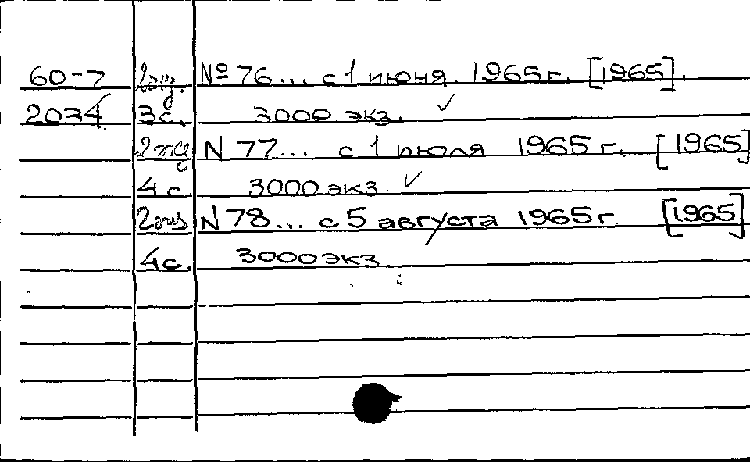 60-7 2экз. №76... с 1 июня 1965г. [1965].
2034 3с. 3000 экз. ✓
2экз N 77... с 1 июля 1965 г. [1965]
4 с 3000 экз ✓
2экз N 78... с 5 августа 1965 г [1965]
4с. 3000 экз